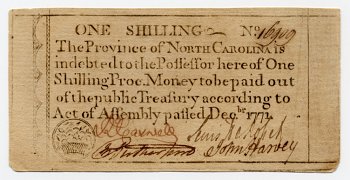 ONE SHILLING No
The Province of NORTH CAROLINA is
indebted to the Possessor here of One
Shilling Proc. Money to be paid out
of the public Treasury according to
Act of Assembly passed Decbr. 1771.
John Harvey